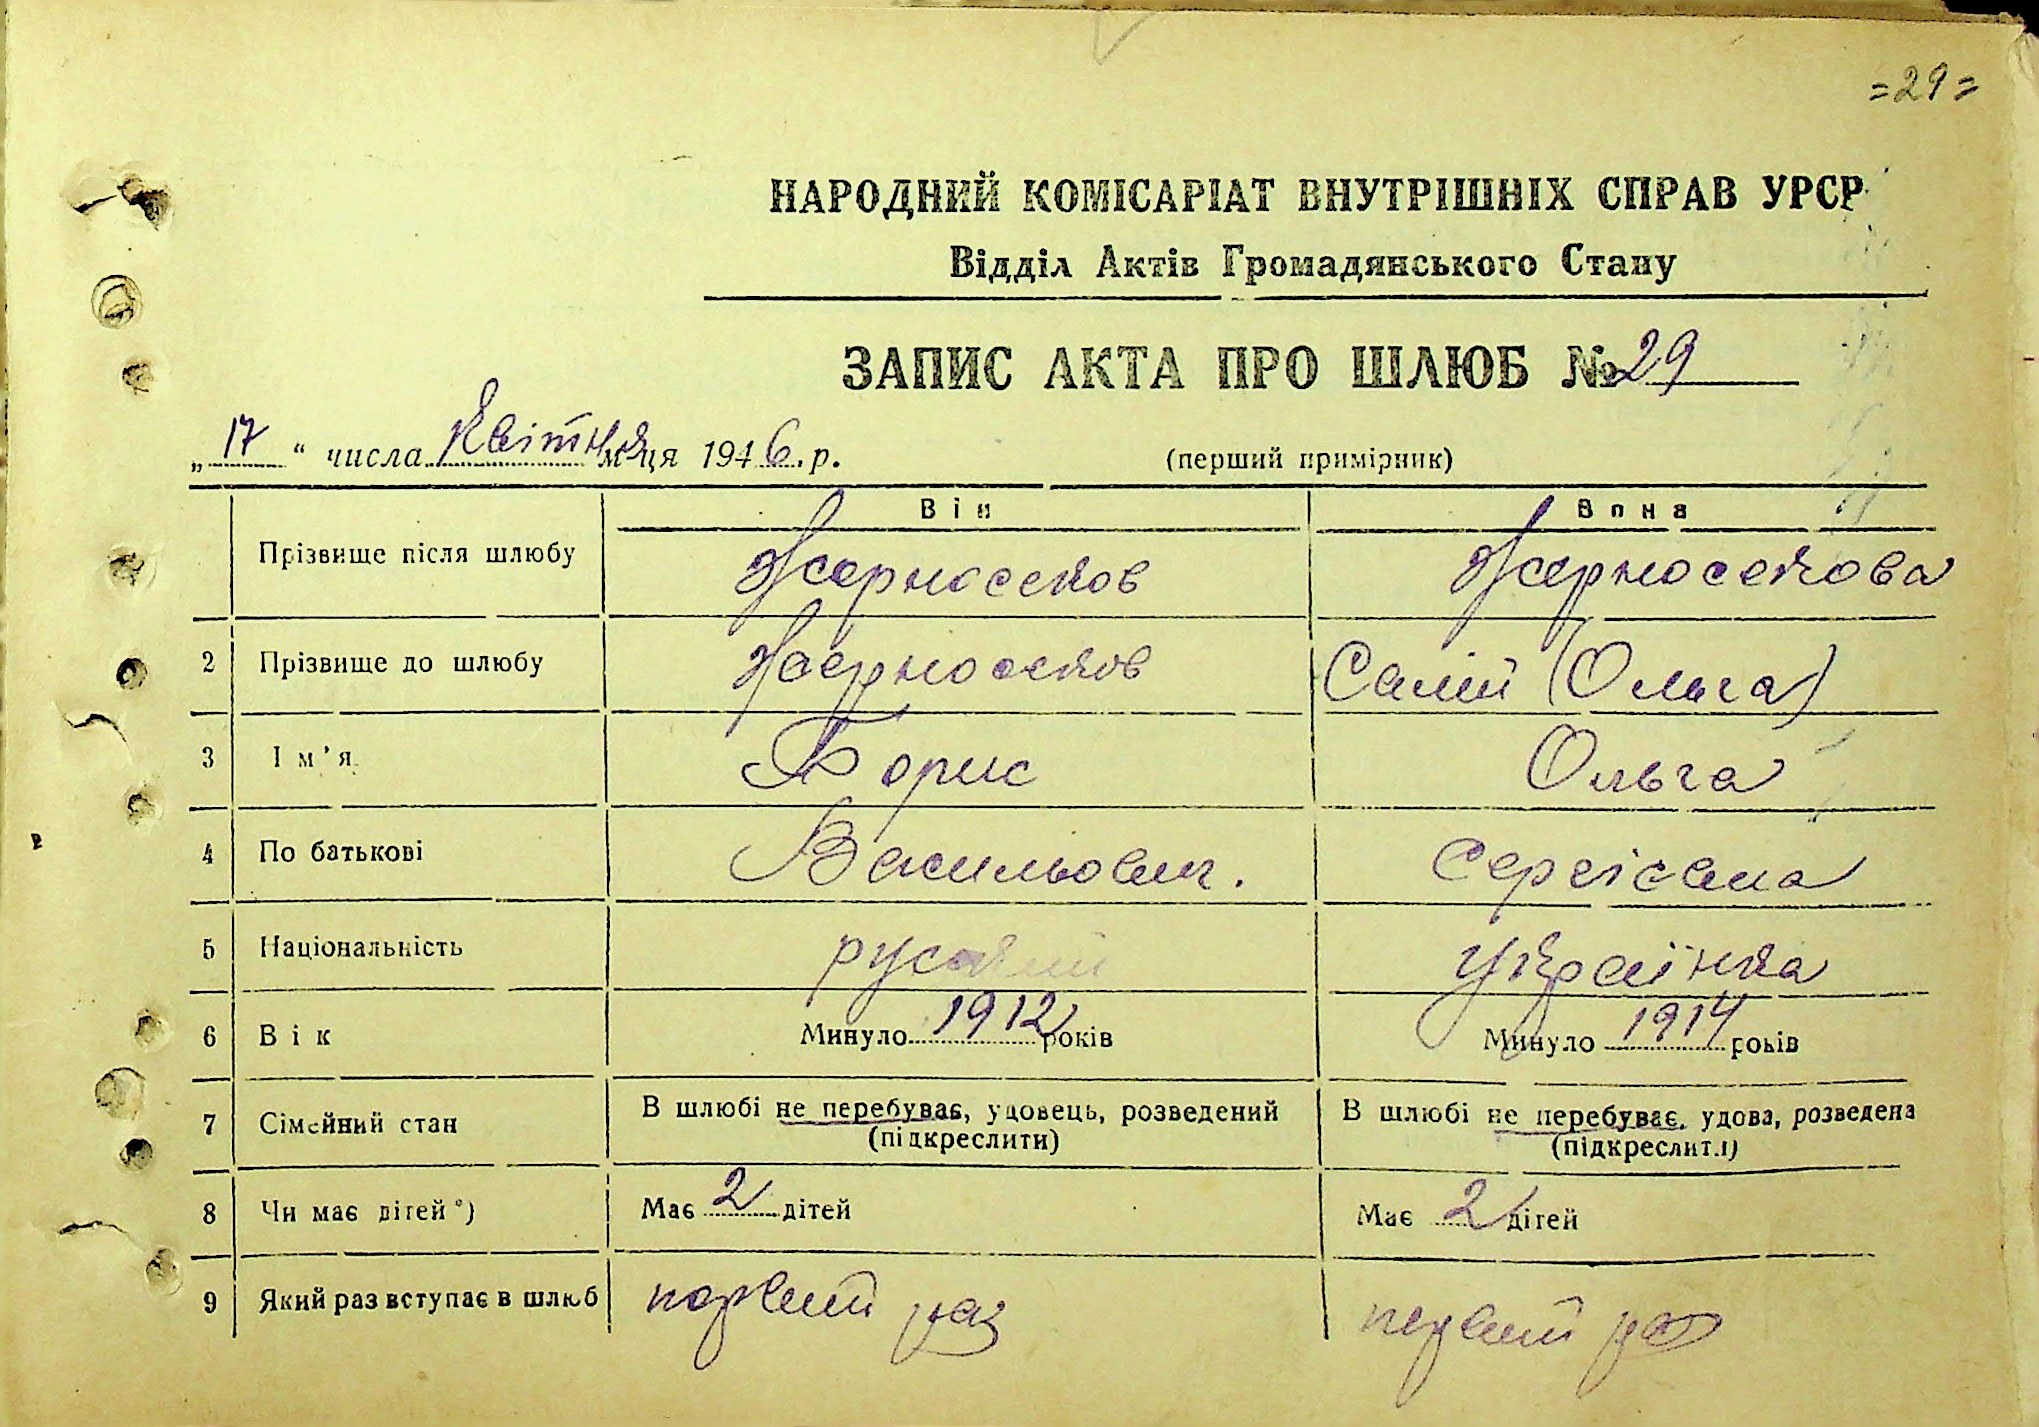 =29=
НАРОДНИЙ КОМІСАРІАТ ВНУТРІШНІХ СПРАВ УРСР
Відділ Актів Громадянського Стану
ЗАПИС АКТА ПРО ШЛЮБ № 29
„17“ числа Квітня м ця 1946.р. (перший примірник)
Він Вона
Прізвище після шлюбу Жерносеков Жерносекова
2 Прізвище до шлюбу Жерносеков Салій (Ольга)
3 Ім’я Борис Ольга
4 По батькові Васильович. Сергієвна
5 Національність руський українка
6 Вік Минуло 1912 років Минуло 1914 років
7 Сімейний стан В шлюбі не перебуває, удовець, розведений В шлюбі не перебуває, удова, розведена
(підкреслити) (підкреслити)
8 Чи має дітей*) Має 2 дітей Має 2 дітей
9 Який раз вступає в шлюб первий раз первий раз